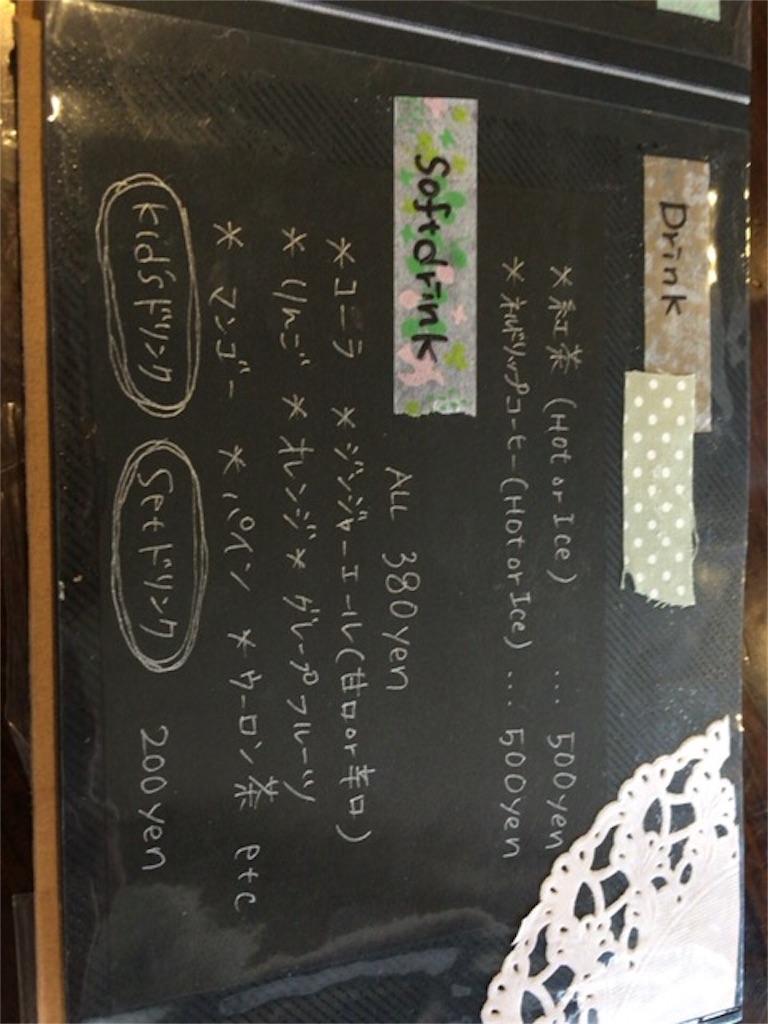 Drink
*紅茶 (Hot or Ice) ... 500yen
*ネルドリップコーヒー(Hot or Ice) ... 500yen
Softdrink
ALL 380yen
*コーラ *ジンジャーエール(甘口or辛口)
*りんご *オレンジ *グレープフルーツ
*マンゴー *パイン *ウーロン茶 etc
Kid'sドリンク Setドリンク 200yen